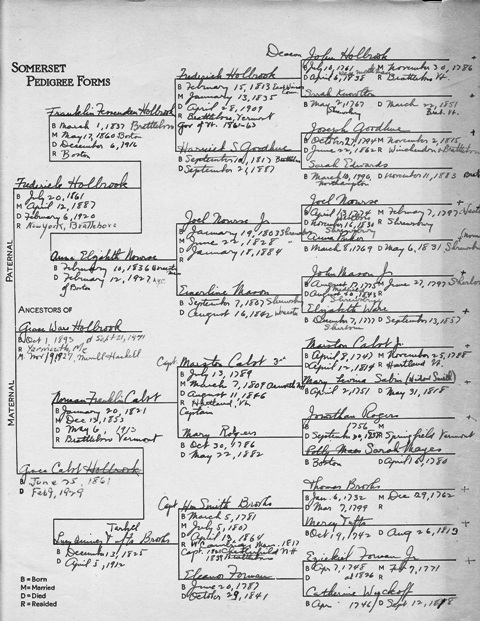 SOMERSET
PEDIGREE FORMS
PATERNAL
MATERNAL
ANCESTORS OF
Grace Ware Holbrook
B Oct 1, 1893 d Sept 21, 1971
R
M Nov 1927, Merrill Haskell
Frederick Holbrook
B July 20, 1861
M April 12, 1887
D February 6, 1920
R New York, Brattleboro
Grace Cabot Holbrook
B June 25, 1861
D Feb 9, 1929
Franklin Fessenden Holbrook
B March 1, 1837 Brattleboro
M May 17, 1860 Boston
D December 6, 1916
R Boston
Anna Elizabeth Nourse
B February 10, 1836
D February 12, 1927 NYC
of Boston
Norman Franklin Cabot
B January 20, 1821
M Dec 13, 1853
D May 6, 1913
R Brattleboro Vermont
Lucy Annis Tufts Brooks
B December 13, 1825
D April 5, 1912
Frederick Holbrook
B February 15, 1813 East Windsor Conn
M January 13, 1835
D April 28, 1909
R Brattleboro, Vermont
Gov of Vt. 1861-63
Harriet S Goodhue
B September 10, 1817 Brattleboro
D September 21, 1887
Joel Nourse Jr
B January 19, 1803 Shrewsbury
M June 22, 1828
D January 18, 1884
Emerline Mason
B September 7, 1807 Shrewsbury
D August 16, 1862
Capt Marston Cabot 3rd
B July 13, 1789
M March 7, 1808
D August 11, 1846
R Hartland, Vt
Captain
Mary Rogers
B Oct 30, 1786
D May 22, 1882
Capt Wm Smith Brooks
B March 5, 1781
M July 5, 1807
D April 13, 1864
R
Capt. 1839 Chesterfield N H
Eleanor Forman
B June 20, 1787
D October 29, 1841
Deacon John Holbrook
B July 10, 1761
M November 30, 1786
D April 6, 1838
R Brattleboro Vt.
Sarah Knowlton
B May 2, 1767
Shrewsbury
D March 22, 1851
Brat. Vt.
Joseph Goodhue
B October 27, 1764
M November 2, 1815
D June 22, 1862
R Brattleboro
Sarah Edwards
B March 10, 1790
Northampton
D November 11, 1883
Joel Nourse
M February 7, 1797
D November 16, 1830
Shrewsbury
Anna Baker
B March 8, 1769
D May 6, 1831 Shrewsbury
John Mason Jr
M June 27, 1797 Sherborn
D August 30, 1843
Shrewsbury
Elizabeth Ware
B December 7, 1777
Sherborn
D September 13, 1857
Marston Cabot Jr
B April 8, 1747
M November 25, 1788
D April 12, 1814
R Hartland Vt.
Mary Levina Sabin (Widow Smith)
B April 2, 1751
D May 31, 1818
Jonathan Rogers
B 1756
M
D September 30, 1837
R Springfield Vermont
Polly Moses Sarah Mayes
B Boston
D April 6, 1780
Thomas Brooks
B Jan 6, 1732
M Dec 29, 1762
D Mar 7, 1799
R
Mercy Tufts
B Oct 19, 1742
D Aug 26, 1813
Ezekiel Forman Jr
B Apr 7, 1748
M Feb 7, 1771
D at 1826
R
Catherine Wyckoff
B Apr 1746
D Sept 12, 1818
B = Born
M = Married
D = Died
R = Resided